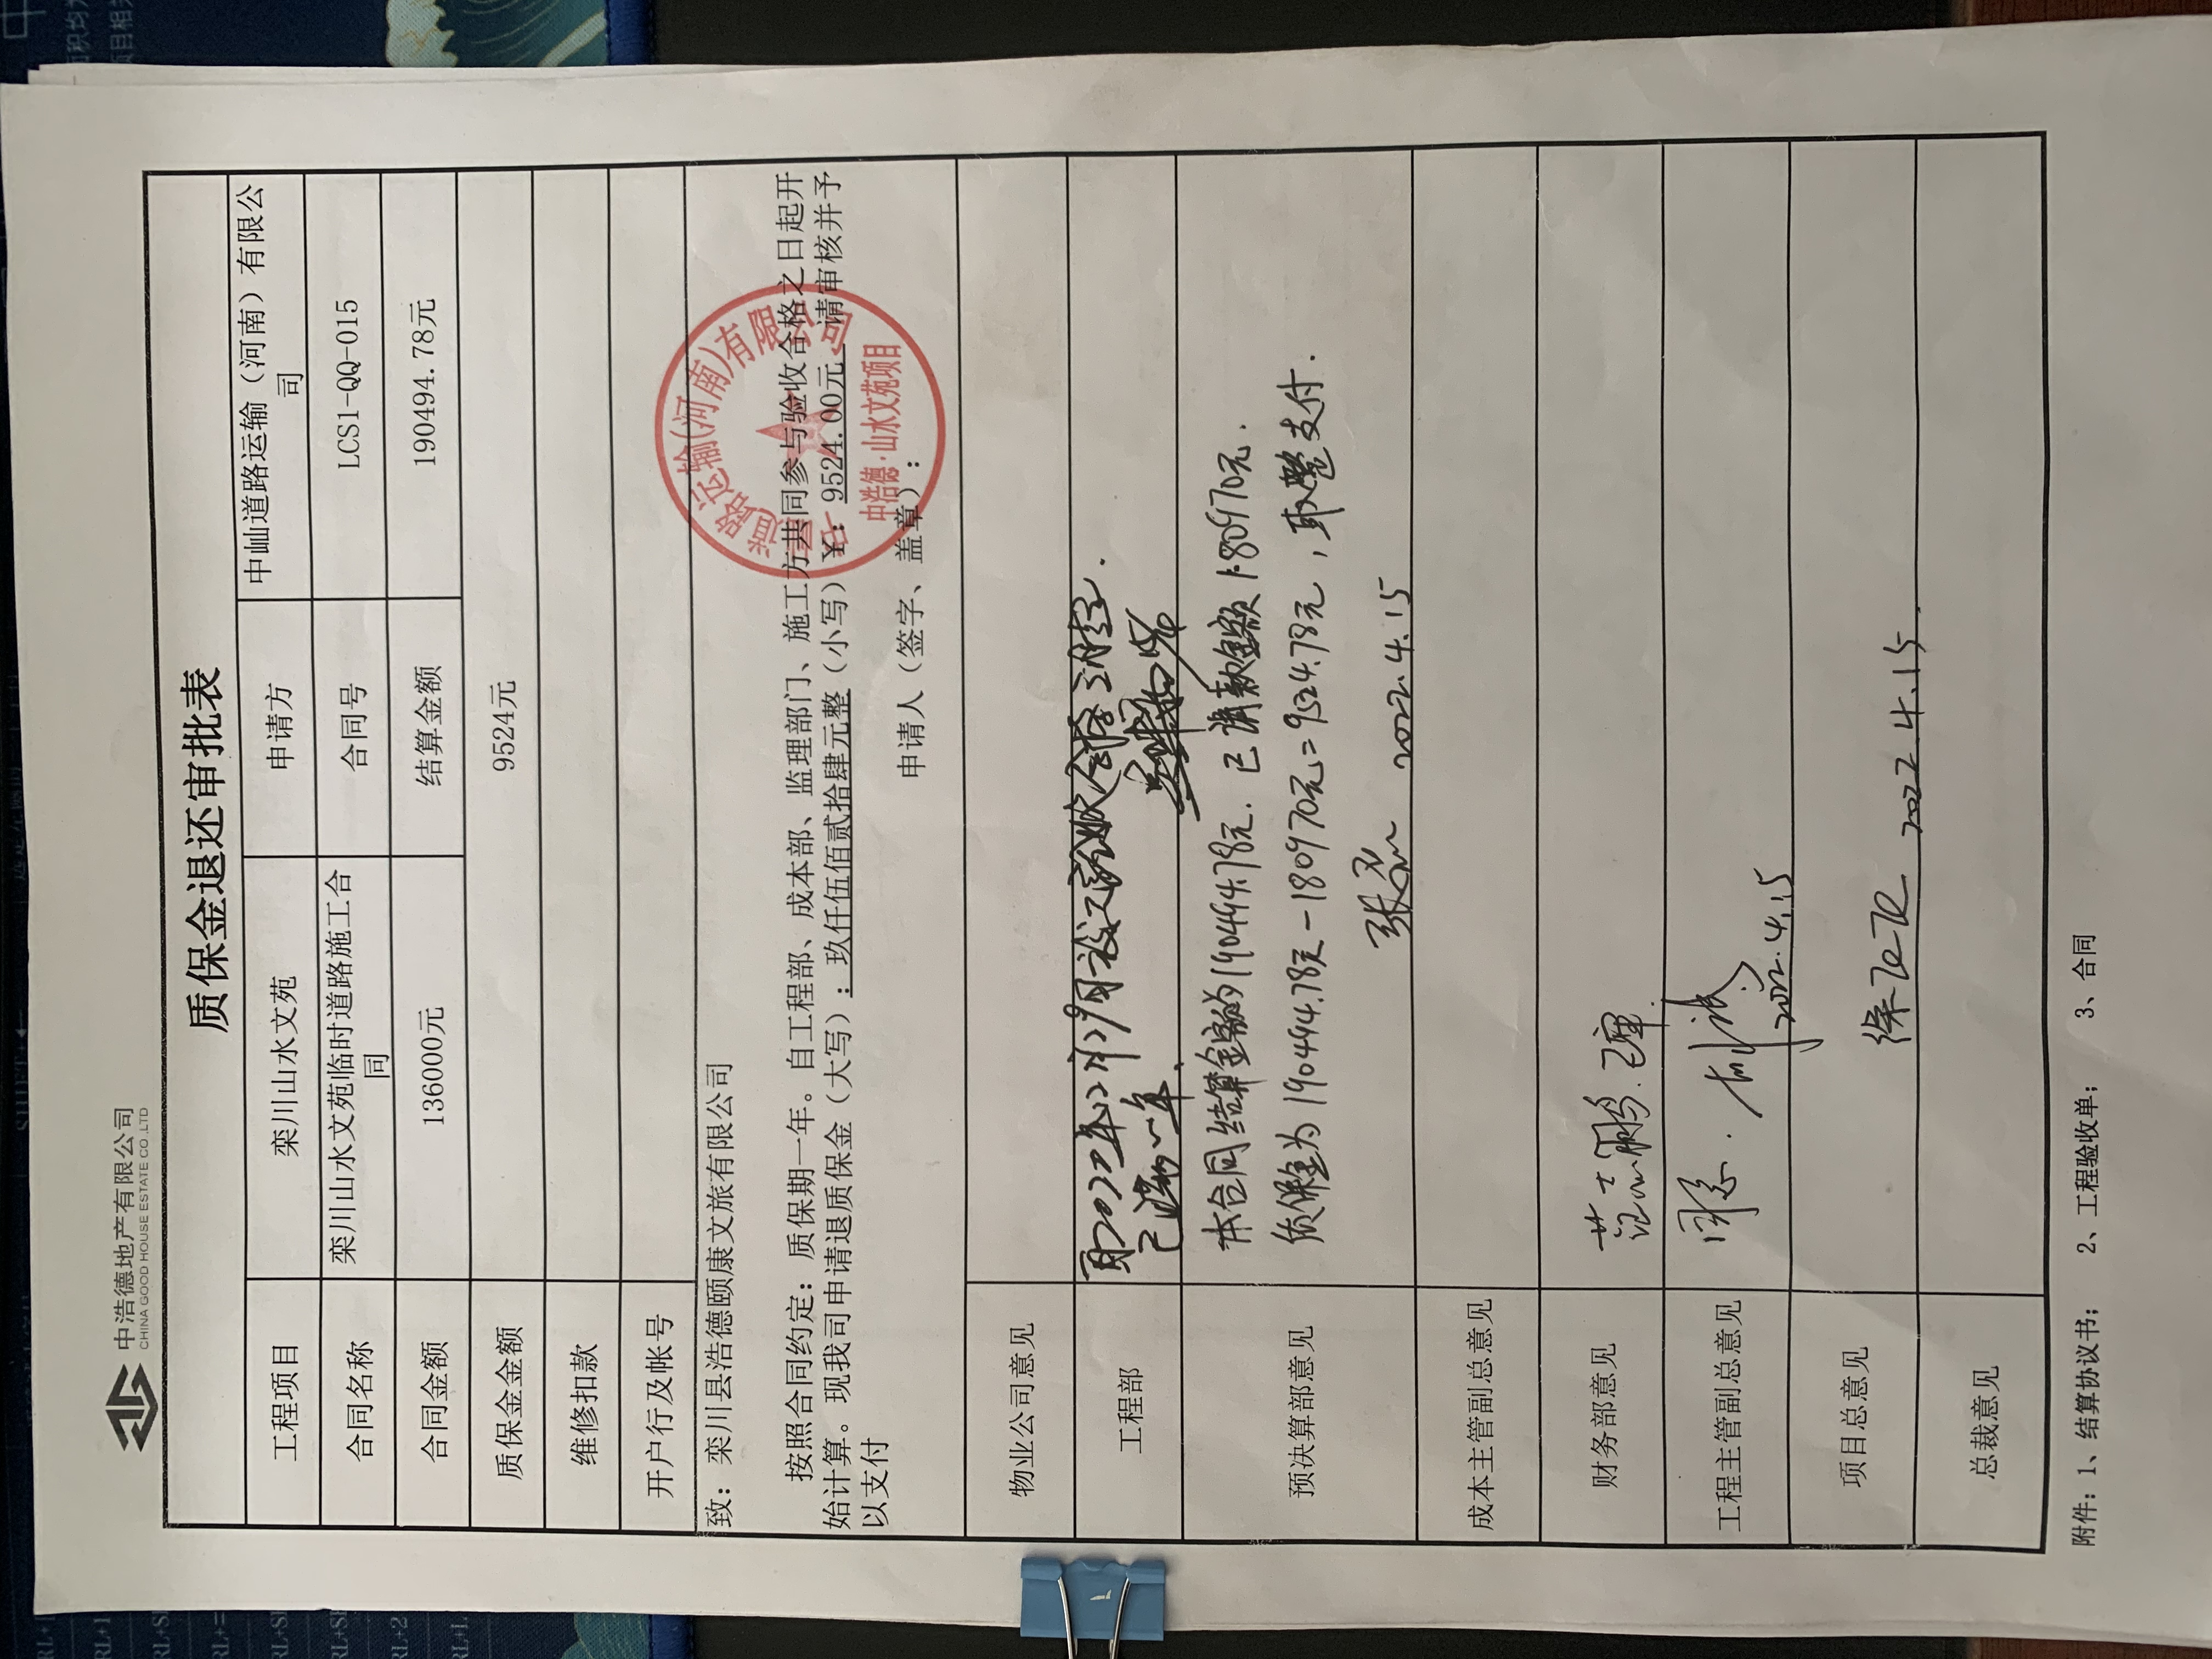 中浩德地产有限公司
CHINA GOOD HOUSE ESTATE CO.,LTD
质保金退还审批表
工程项目 栾川山水文苑 申请方 中屾道路运输（河南）有限公司
合同名称 栾川山水文苑临时道路施工合同 合同号 LCS1-QQ-015
合同金额 136000元 结算金额 190494.78元
质保金金额 9524元
维修扣款
开户行及帐号
致：栾川县浩德颐康文旅有限公司
按照合同约定：质保期一年。自工程部、成本部、监理部门、施工方共同参与验收合格之日起开
始计算。现我司申请退质保金（大写）：玖仟伍佰贰拾肆元整（小写）¥：9524.00元 请审核并予
以支付
申请人（签字、盖章）：
道路运输(河南)有限公司
中浩德·山水文苑项目
物业公司意见
工程部
已满一年.
预决算部意见
本合同结算金额为190494.78元. 已请款金额180970元.
质保金为190494.78元-180970元=9524.78元, 取整支付.
2022.4.15
成本主管副总意见
财务部意见
工程主管副总意见
同意.
2022.4.15
项目总意见
2022.4.15.
总裁意见
附件：1、结算协议书； 2、工程验收单； 3、合同